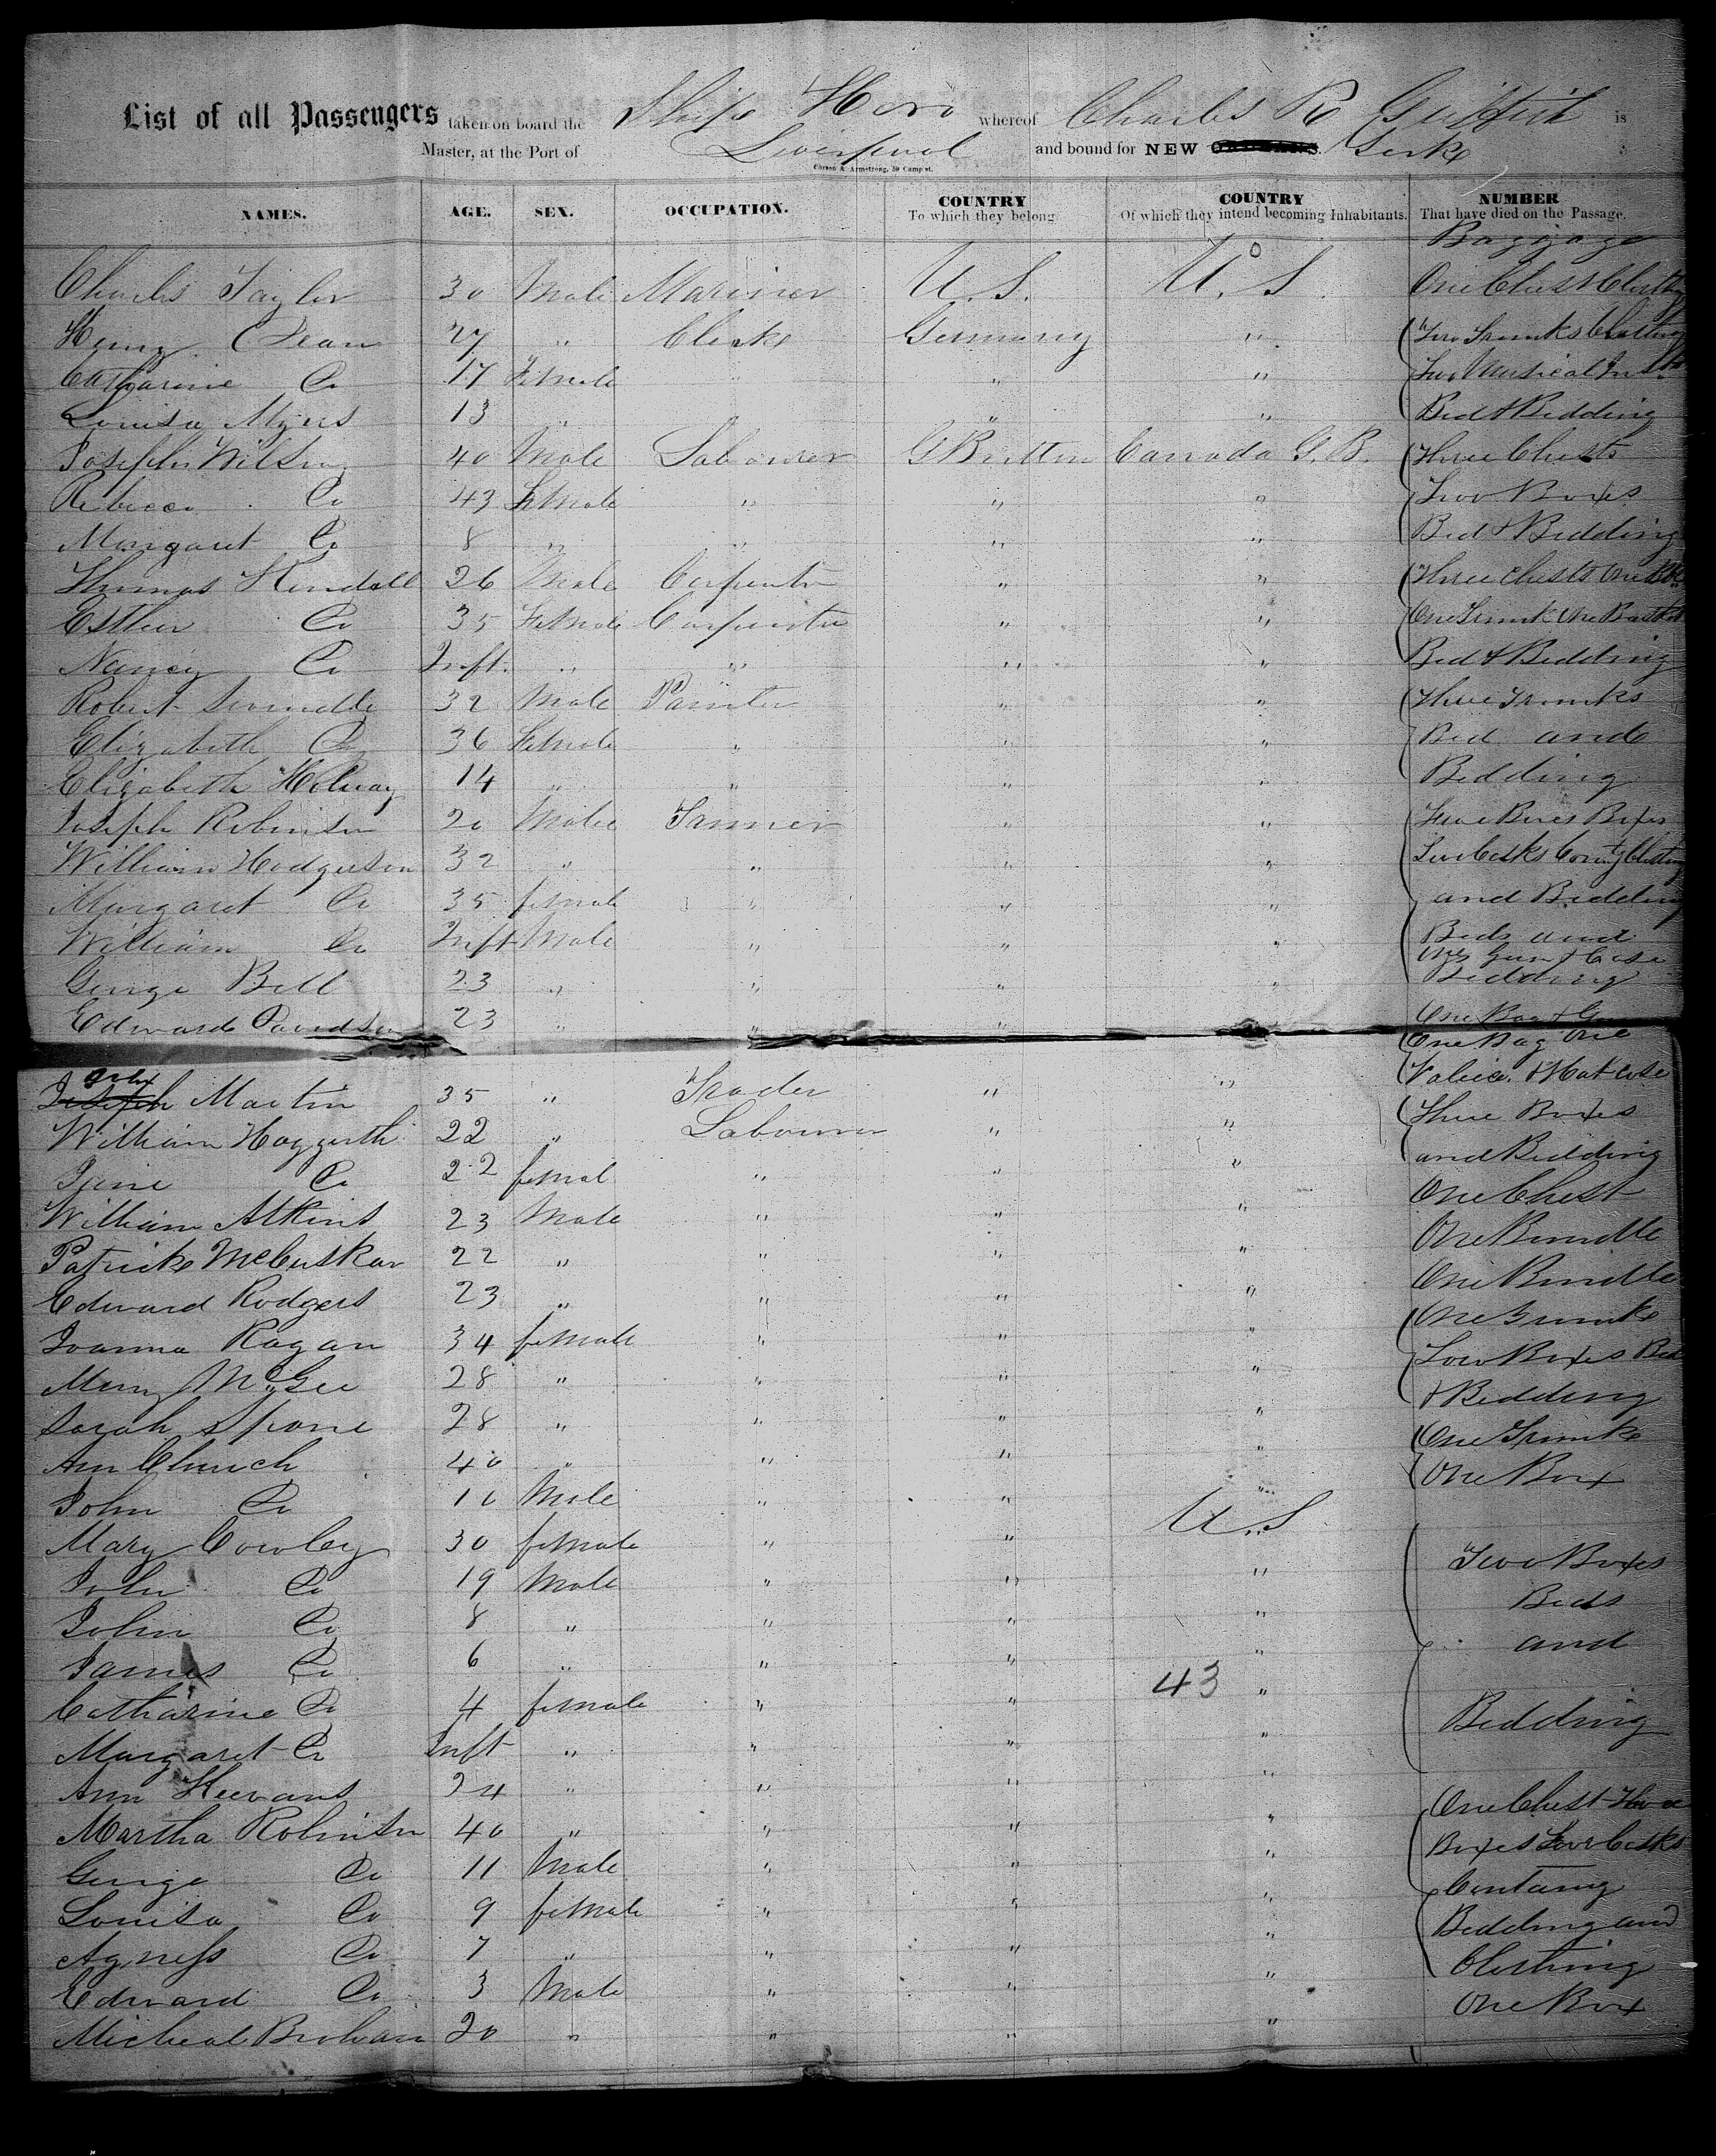 List of all Passengers taken on board the Ship Hero whereof Charles R Griffith is
Master, at the Port of Liverpool and bound for NEW ORLEANS. York
Carson & Armstrong, 59 Camp st.
NAMES. AGE. SEX. OCCUPATION. COUNTRY To which they belong COUNTRY Of which they intend becoming Inhabitants. NUMBER That have died on the Passage.
Baggage
Charles Taylor 30 Male Mariner U.S. U.S. One Chest Clothing
Henry Dean 27 " Clerk Germany " Two Trunks Clothing
Catharine Do 17 Female " " " Two Musical Insts
Louisa Myers 13 " " " Bed & Bedding
Joseph Wilson 40 Male Labourer G Britten Canada G.B. Three Chests
Rebecca Do 43 Female " " " Two Boxes
Margaret Do 8 " " " " Bed & Bedding
Thomas Kendall 26 Male Carpenter " " Three Chests One Box
Esther Do 35 Female Carpenter " " One Trunk One Basket
Nancy Do Inft. " " " " Bed & Bedding
Robert 32 Male Painter " " Three Trunks
Elizabeth Do 36 Female " " " Bed and
Elizabeth 14 " " " " Bedding
Joseph Robinson 20 Male Tanner " " Boxes
William Hodgeson 32 " " " " Two Casks Containg Clothing
Margaret Do 35 female " " " and Bedding
William Do Inft Male " " " Beds and
One Gun & Case
George Bell 23 " " " " Bedding
Edward Davidson 23 " " " " One Bag & Gun
One Bag One
Joseph Martin 35 " Trader " " Valice & Hat case
William Haggerth 22 " Labourer " " Three Boxes
Jane Do 22 femal " " " and Bedding
William Atkins 23 Male " " " One Chest
Patrick McCuskar 22 " " " " One Bundle
Edward Rodgers 23 " " " " One Bundle
Joanna Ragan 34 female " " " One Trunk
Mary McGee 28 " " " " Two Boxes Bed
Sarah Spone 28 " " " " & Bedding
Ann Church 40 " " " " One Trunk
John Do 10 Male " " " One Box
Mary Cowley 30 female " " U.S
John Do 19 Male " " " Two Boxes
John Do 8 " " " " Beds
James Do 6 " " " " and
Catharine Do 4 female " " 43 "
Margaret Do Inft " " " " Bedding
Ann Keevans 24 " " " "
Martha Robinson 40 " " " " One Chest Three
George Do 11 Male " " " Boxes Four Casks
Louisa Do 9 female " " " Containg
Agness Do 7 " " " " Bedding and
Edward Do 3 Male " " " Clothing
Micheal Brohan 20 " " " " One Box